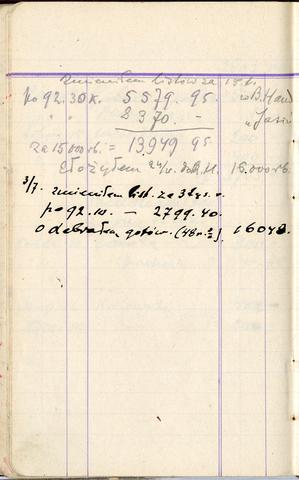 zmieniłem listów za 15 t.
po 92.30 k. 5579. 95. w B. Hand
" " 8370. - " Jasiń
za 15000 rb. = 13949 95.
Złożyłem 24/IV. do B.H. 15.000 rb.
3/7. zmieniłem list. za 3 tys. r.
po 92.10. - 2799.40.
Odebrałem gotów. (48 r. %) 16048.